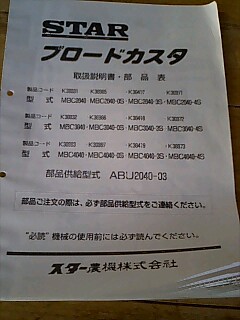 STAR
ブロードカスタ
取扱説明書・部品表
製品コード
型式 MBC2040 MBC2040-0S MBC2040-3S MBC2040-4S
製品コード
型式 MBC3040 MBC3040-0S MBC3040-3S MBC3040-4S
製品コード
型式 MBC4040 MBC4040-0S MBC4040-3S MBC4040-4S
部品供給型式 ABU2040-03
部品ご注文の際は、必ず部品供給型式をご連絡ください。
“必読”機械の使用前には必ず読んでください。
スター農機株式会社